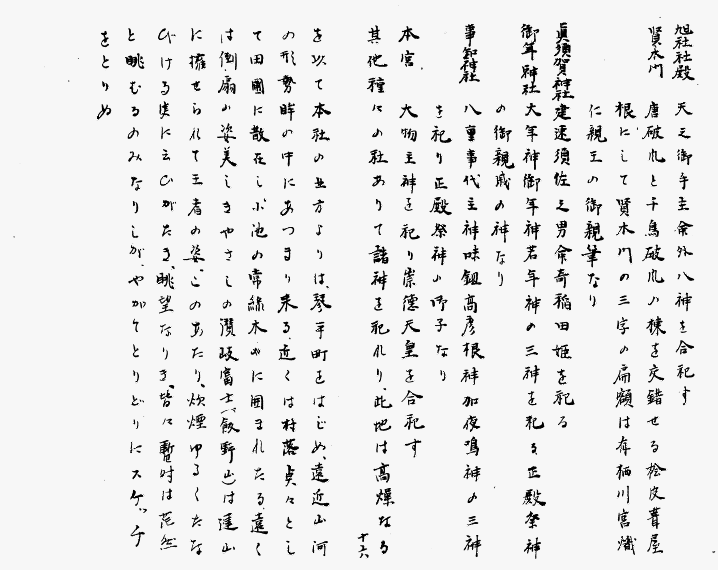 旭社社殿　天之御手主命外八神を合祀す
賢木門　唐破風と千鳥破風の棟を交錯せる桧皮葺屋
根にして賢木門の三字の扁額は有栖川宮熾
仁親王の御親筆なり
眞須賀神社　建速須佐之男命奇稲田姫を祀る
御年神社　大年神御年神若年神の三神を祀る正殿祭神
の御親戚の神なり
事知神社　八重事代主神味鉏高彦根神加夜鳴神の三神
を祀り正殿祭神の御子なり
本宮　大物主神を祀り崇徳天皇を合祀す
其他種々の社ありて諸神を祀れり、此地は高燥なる
十六
を以て本社の西方よりは、琴平町をはじめ、遠近山河
の形勢眸の中にあつまり来る、近くは村落貞々とし
て田園に散在し小池の常緑木々に囲まれたる遠く
は倒扇の姿美しきやさしの讃岐富士(飯野山)は連山
に擁せられて王者の姿、このあたり、炊煙ゆるくたな
びける実に云ひがたき、眺望なりき、皆々暫時は茫然
と眺むるのみなりしが、やがてとりどりにスケッチ
をとりぬ